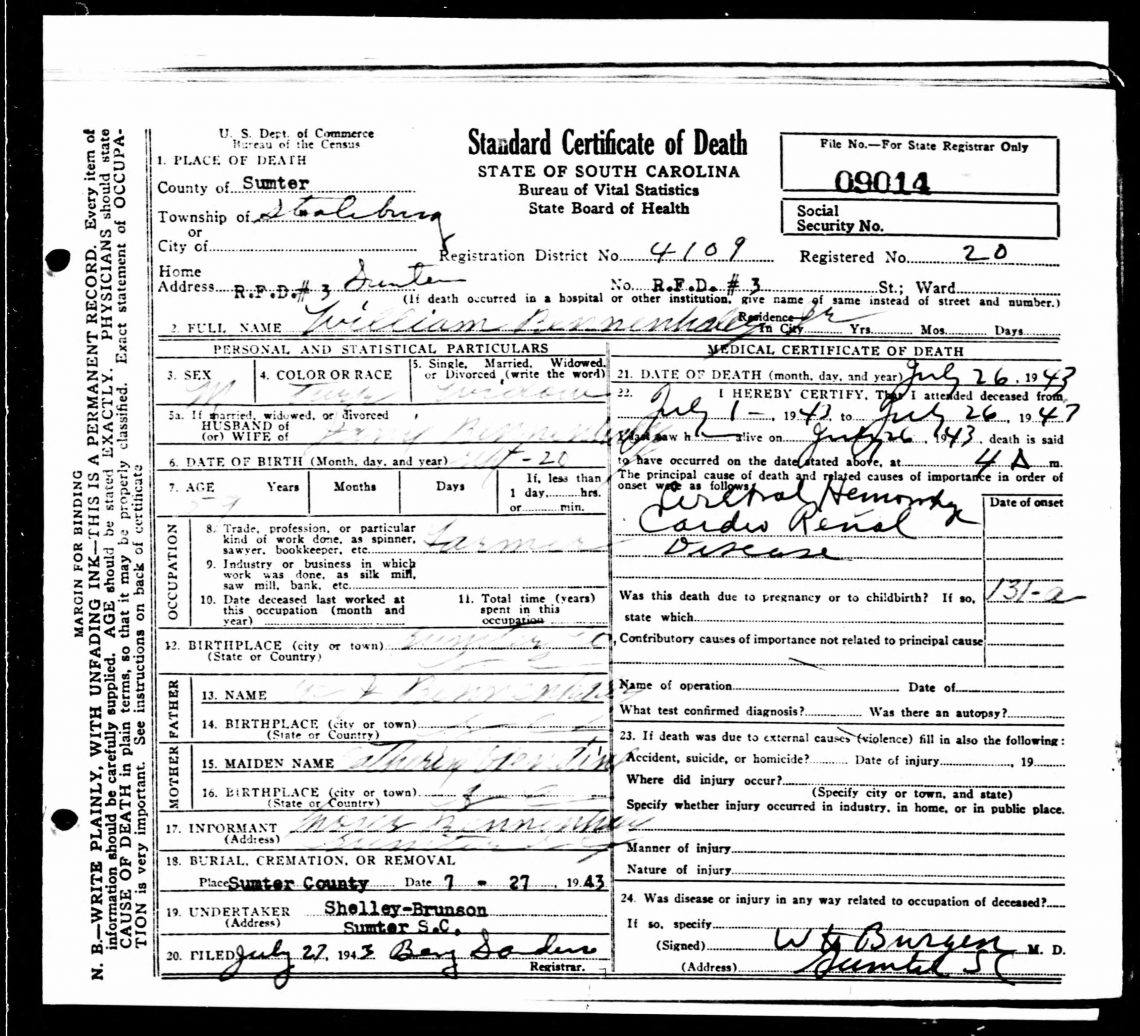 U. S. Dept. of Commerce
Bureau of the Census
Standard Certificate of Death
STATE OF SOUTH CAROLINA
Bureau of Vital Statistics
State Board of Health
File No.—For State Registrar Only
09014
Social
Security No.
1. PLACE OF DEATH
County of Sumter
Township of
or
City of
Registration District No. 4109 Registered No. 20
Home
Address R.F.D.# 3 Sumter No. R.F.D. # 3 St.; Ward
(If death occurred in a hospital or other institution, give name of same instead of street and number.)
2. FULL NAME William Jr
Residence
In City Yrs. Mos. Days
PERSONAL AND STATISTICAL PARTICULARS
3. SEX M
4. COLOR OR RACE Turk
5. Single, Married, Widowed, or Divorced (write the word)
5a. If married, widowed, or divorced
HUSBAND of
(or) WIFE of
6. DATE OF BIRTH (Month, day, and year)
7. AGE Years Months Days If, less than
1 day hrs.
or min.
OCCUPATION
8. Trade, profession, or particular
kind of work done, as spinner,
sawyer, bookkeeper, etc. Farmer
9. Industry or business in which
work was done, as silk mill,
saw mill, bank, etc.
10. Date deceased last worked at
this occupation (month and
year)
11. Total time (years)
spent in this
occupation
12. BIRTHPLACE (city or town) Sumter
(State or Country)
FATHER
13. NAME
14. BIRTHPLACE (city or town)
(State or Country)
MOTHER
15. MAIDEN NAME
16. BIRTHPLACE (city or town)
(State or Country)
17. INFORMANT
(Address)
18. BURIAL, CREMATION, OR REMOVAL
Place Sumter County Date 7 - 27, 1943
19. UNDERTAKER Shelley-Brunson
(Address) Sumter S.C.
20. FILED July 27, 1943
Registrar.
MEDICAL CERTIFICATE OF DEATH
21. DATE OF DEATH (month, day, and year) July 26, 1943
22. I HEREBY CERTIFY, That I attended deceased from
July 1 -, 1943 to July 26, 1943
I last saw h alive on July 26, 1943, death is said
to have occurred on the date stated above, at 4 A m.
The principal cause of death and related causes of importance in order of
onset were as follows:
Date of onset
Cerebral
Cardio Renal
Disease
131-a
Was this death due to pregnancy or to childbirth? If so,
state which
Contributory causes of importance not related to principal cause
Name of operation Date of
What test confirmed diagnosis? Was there an autopsy?
23. If death was due to external causes (violence) fill in also the following:
Accident, suicide, or homicide? Date of injury, 19
Where did injury occur?
(Specify city or town, and state)
Specify whether injury occurred in industry, in home, or in public place.
Manner of injury
Nature of injury
24. Was disease or injury in any way related to occupation of deceased?
If so, specify
(Signed) M. D.
(Address) Sumter SC
MARGIN FOR BINDING
N. B.—WRITE PLAINLY, WITH UNFADING INK—THIS IS A PERMANENT RECORD. Every item of
information should be carefully supplied. AGE should be stated EXACTLY. PHYSICIANS should state
CAUSE OF DEATH in plain terms, so that it may be properly classified. Exact statement of OCCUPA-
TION is very important. See instructions on back of certificate